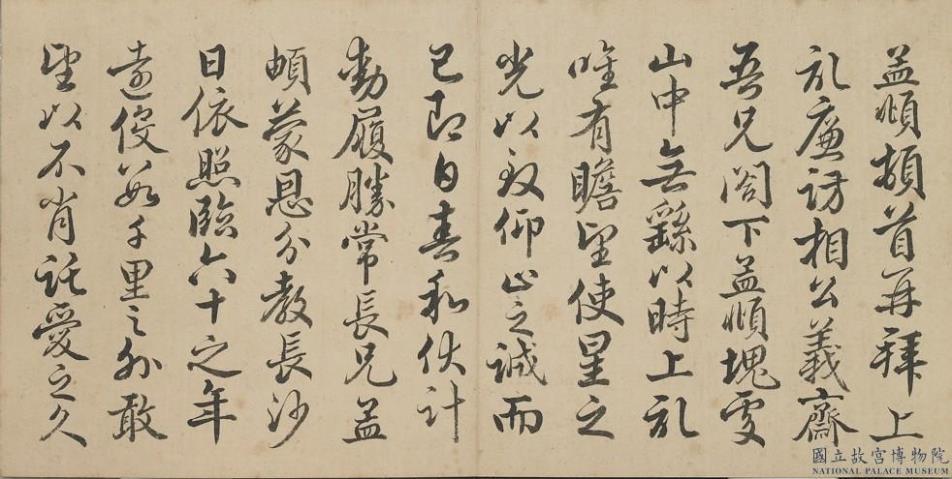 益順頓首再拜上
札廉訪相公義齋
吾兄閤下益順塊處
山中無繇以時上札
唯有瞻望使星之
光以致仰止之誠而
已即日春和伏計
動履勝常長兄益
頔蒙恩分教長沙
日依照臨六十之年
遠役數千里之外敢
望以不肖託愛之久
國立故宮博物院
NATIONAL PALACE MUSEUM